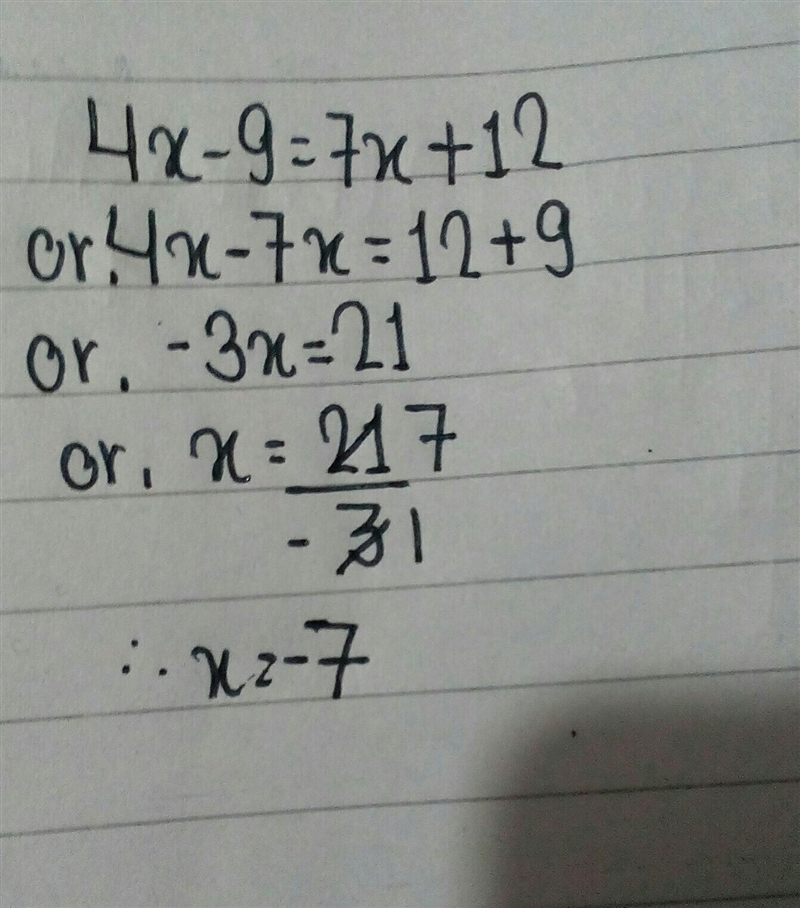 4x-9=7x+12
or. 4x-7x=12+9
or. -3x=21
or. x= 21 7
-31
∴ x=-7